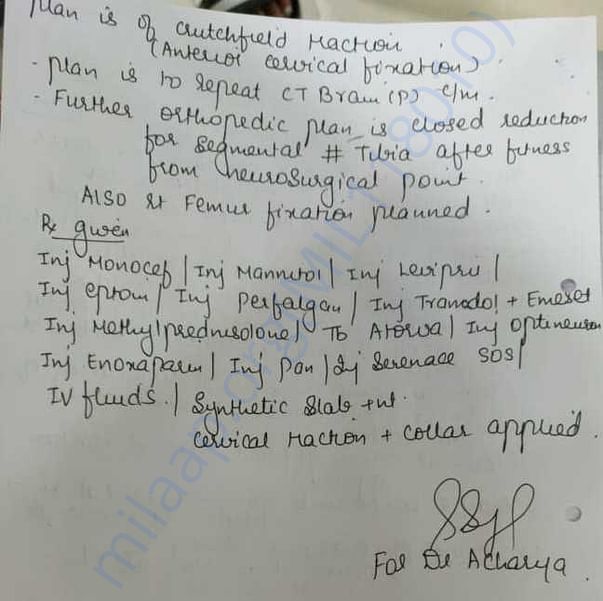 Plan is of Crutchfield traction.
(Anterior cervical fixation)
- Plan is to repeat CT Brain (P) c/m.
- Further orthopedic plan is closed reduction
for segmental # Tibia after fitness
from neurosurgical point.
Also Rt Femur fixation planned.
Rx given
Inj Monocef | Inj Mannitol | Inj Levipril |
Inj eptoin | Inj Perfalgan | Inj Tramadol + Emeset
Inj Methylprednisolone | Tb Atorva | Inj Optineuron
Inj Enoxaparin | Inj Pan | Inj Serenace SOS |
IV fluids. | Synthetic Slab +nt.
cervical traction + collar applied.
For Dr Acharya.